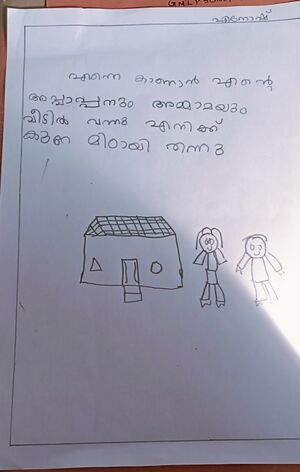 എനോഷ്
എന്നെ കാണാൻ എന്റെ
അപ്പാപ്പനും അമ്മാമയും
വീടിൽ വന്നു എനിക്ക്
കുറേ മിഠായി തന്നു